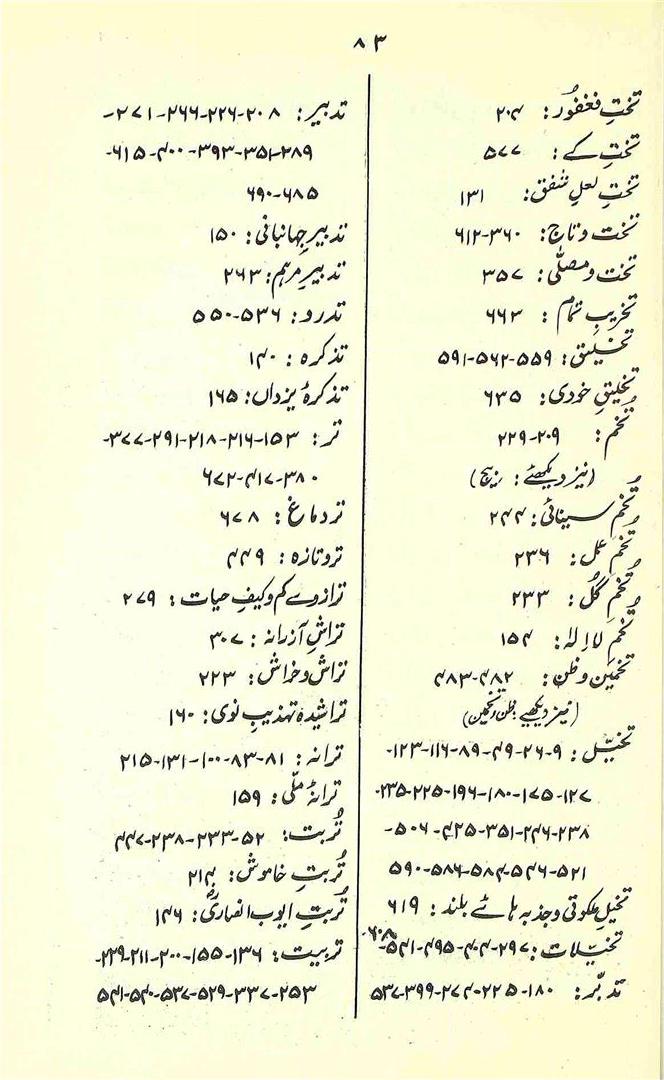 ۸۳
تختِ فغفُور: ۲۰۴
تختِ کے: ۵۷۷
تختِ لعلِ شفق: ۱۳۱
تخت و تاج: ۳۶۰-۶۱۲
تخت و مصلّٰی: ۳۵۷
تخریبِ تمام: ۶۶۳
تخلیق: ۵۵۹-۵۶۲-۵۹۱
تخلیقِ خودی: ۶۳۵
تُخم: ۲۰۹-۲۲۹
(نیز دیکھئے: بیج)
تُخمِ سینائی: ۲۴۴
تُخمِ عمل: ۲۳۶
تُخمِ گُل: ۲۳۳
تُخمِ لا اِلٰہ: ۱۵۴
تخمین و ظن: ۴۸۲-۴۸۳
(نیز دیکھیے ظن و تخمین)
تخیّل: ۹-۲۶-۴۹-۸۹-۱۱۶-۱۲۳-
۱۲۷-۱۷۵-۱۸۰-۱۹۶-۲۲۵-۲۳۵-
۲۳۸-۲۴۶-۳۵۱-۴۲۵-۵۰۶-
۵۲۱-۵۴۶-۵۸۴-۵۸۶-۵۹۰
تخیلِ ملکوتی و جذبہ ہائے بلند: ۶۱۹
تخیّلات: ۲۹۷-۴۰۴-۴۹۵-۵۴۱-۶۰۸
تدبّر: ۱۸۰-۲۲۵-۲۷۴-۳۹۹-۵۳۷
تدبیر: ۲۰۸-۲۲۶-۲۶۶-۲۷۱-
۲۸۹-۳۵۱-۳۹۳-۴۰۰-۶۱۵-
۶۸۵-۶۹۰
تدبیرِ جہانبانی: ۱۵۰
تدبیرِ مرہم: ۲۶۳
تدرو: ۵۳۶-۵۵۰
تذکرہ: ۱۴۰
تذکرۂ یزداں: ۱۶۵
تر: ۱۵۳-۲۱۶-۲۱۸-۲۹۱-۳۷۷-
۳۸۰-۴۱۷-۶۷۲
تر دماغ: ۶۷۸
تر و تازہ: ۴۴۹
ترازوے کم و کیفِ حیات: ۲۷۹
تراشِ آزرانہ: ۳۰۷
تراش و خراش: ۲۲۳
تراشیدہ تہذیبِ نوی: ۱۶۰
ترانہ: ۸۱-۸۳-۱۰۰-۱۳۱-۲۱۵
ترانۂ ملّی: ۱۵۹
تُربت: ۵۲-۲۳۳-۲۳۸-۴۴۷
تُربتِ خاموش: ۲۱۴
تُربتِ ایوب انصاریؓ: ۱۴۶
تربیت: ۱۳۶-۱۵۵-۲۰۰-۲۱۱-۲۲۹-
۲۵۳-۳۳۷-۵۲۹-۵۳۷-۵۴۰-۵۴۱